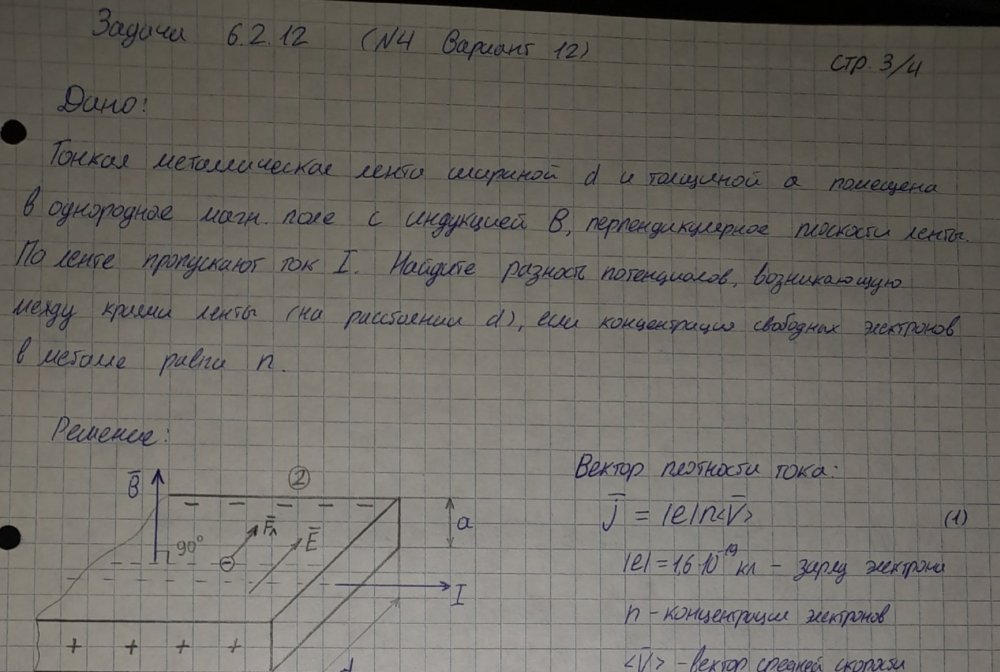 Задача 6.2.12 (N4 Вариант 12)
стр. 3/4
Дано:
Тонкая металлическая лента шириной d и толщиной a помещена
в однородное магн. поле с индукцией B, перпендикулярное плоскости ленты.
По ленте пропускают ток I. Найдите разность потенциалов, возникающую
между краями ленты (на расстоянии d), если концентрация свободных электронов
в металле равна n.
Решение:
Вектор плотности тока:
j̅ = |e|n<V̅> (1)
|e|=1,6·10⁻¹⁹ кл - заряд электрона
n - концентрация электронов
<V̅> - вектор средней скорости
B̅
②
− − − − − −
F̅л
E̅
a
90°
−
I
+ + + +
d